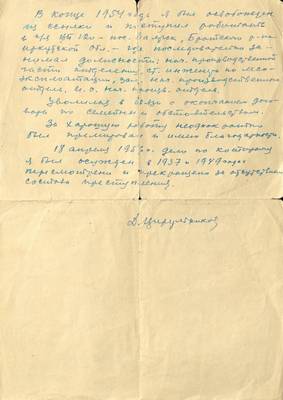 В конце 1954 года я был освобожден
из ссылки и поступил работать
в п/я № 120 - пос. Заярск, Братского р-на
Иркутской обл. - где последовательно за-
нимал должности: нач. производственной
части отделения, ст. инженер по лесо-
эксплоатации, зам. нач. производственного
отдела, и.о. нач. произв. отдела.
Уволился в связи с окончанием дого-
вора по семейным обстоятельствам.
За хорошую работу неоднократно
был премирован и имею благодарности.
18 апреля 1956 г. дела по которым
я был осужден в 1937 и 1949 годах
пересмотрены и прекращены за отсутствием
состава преступления.
Д. Цирульников